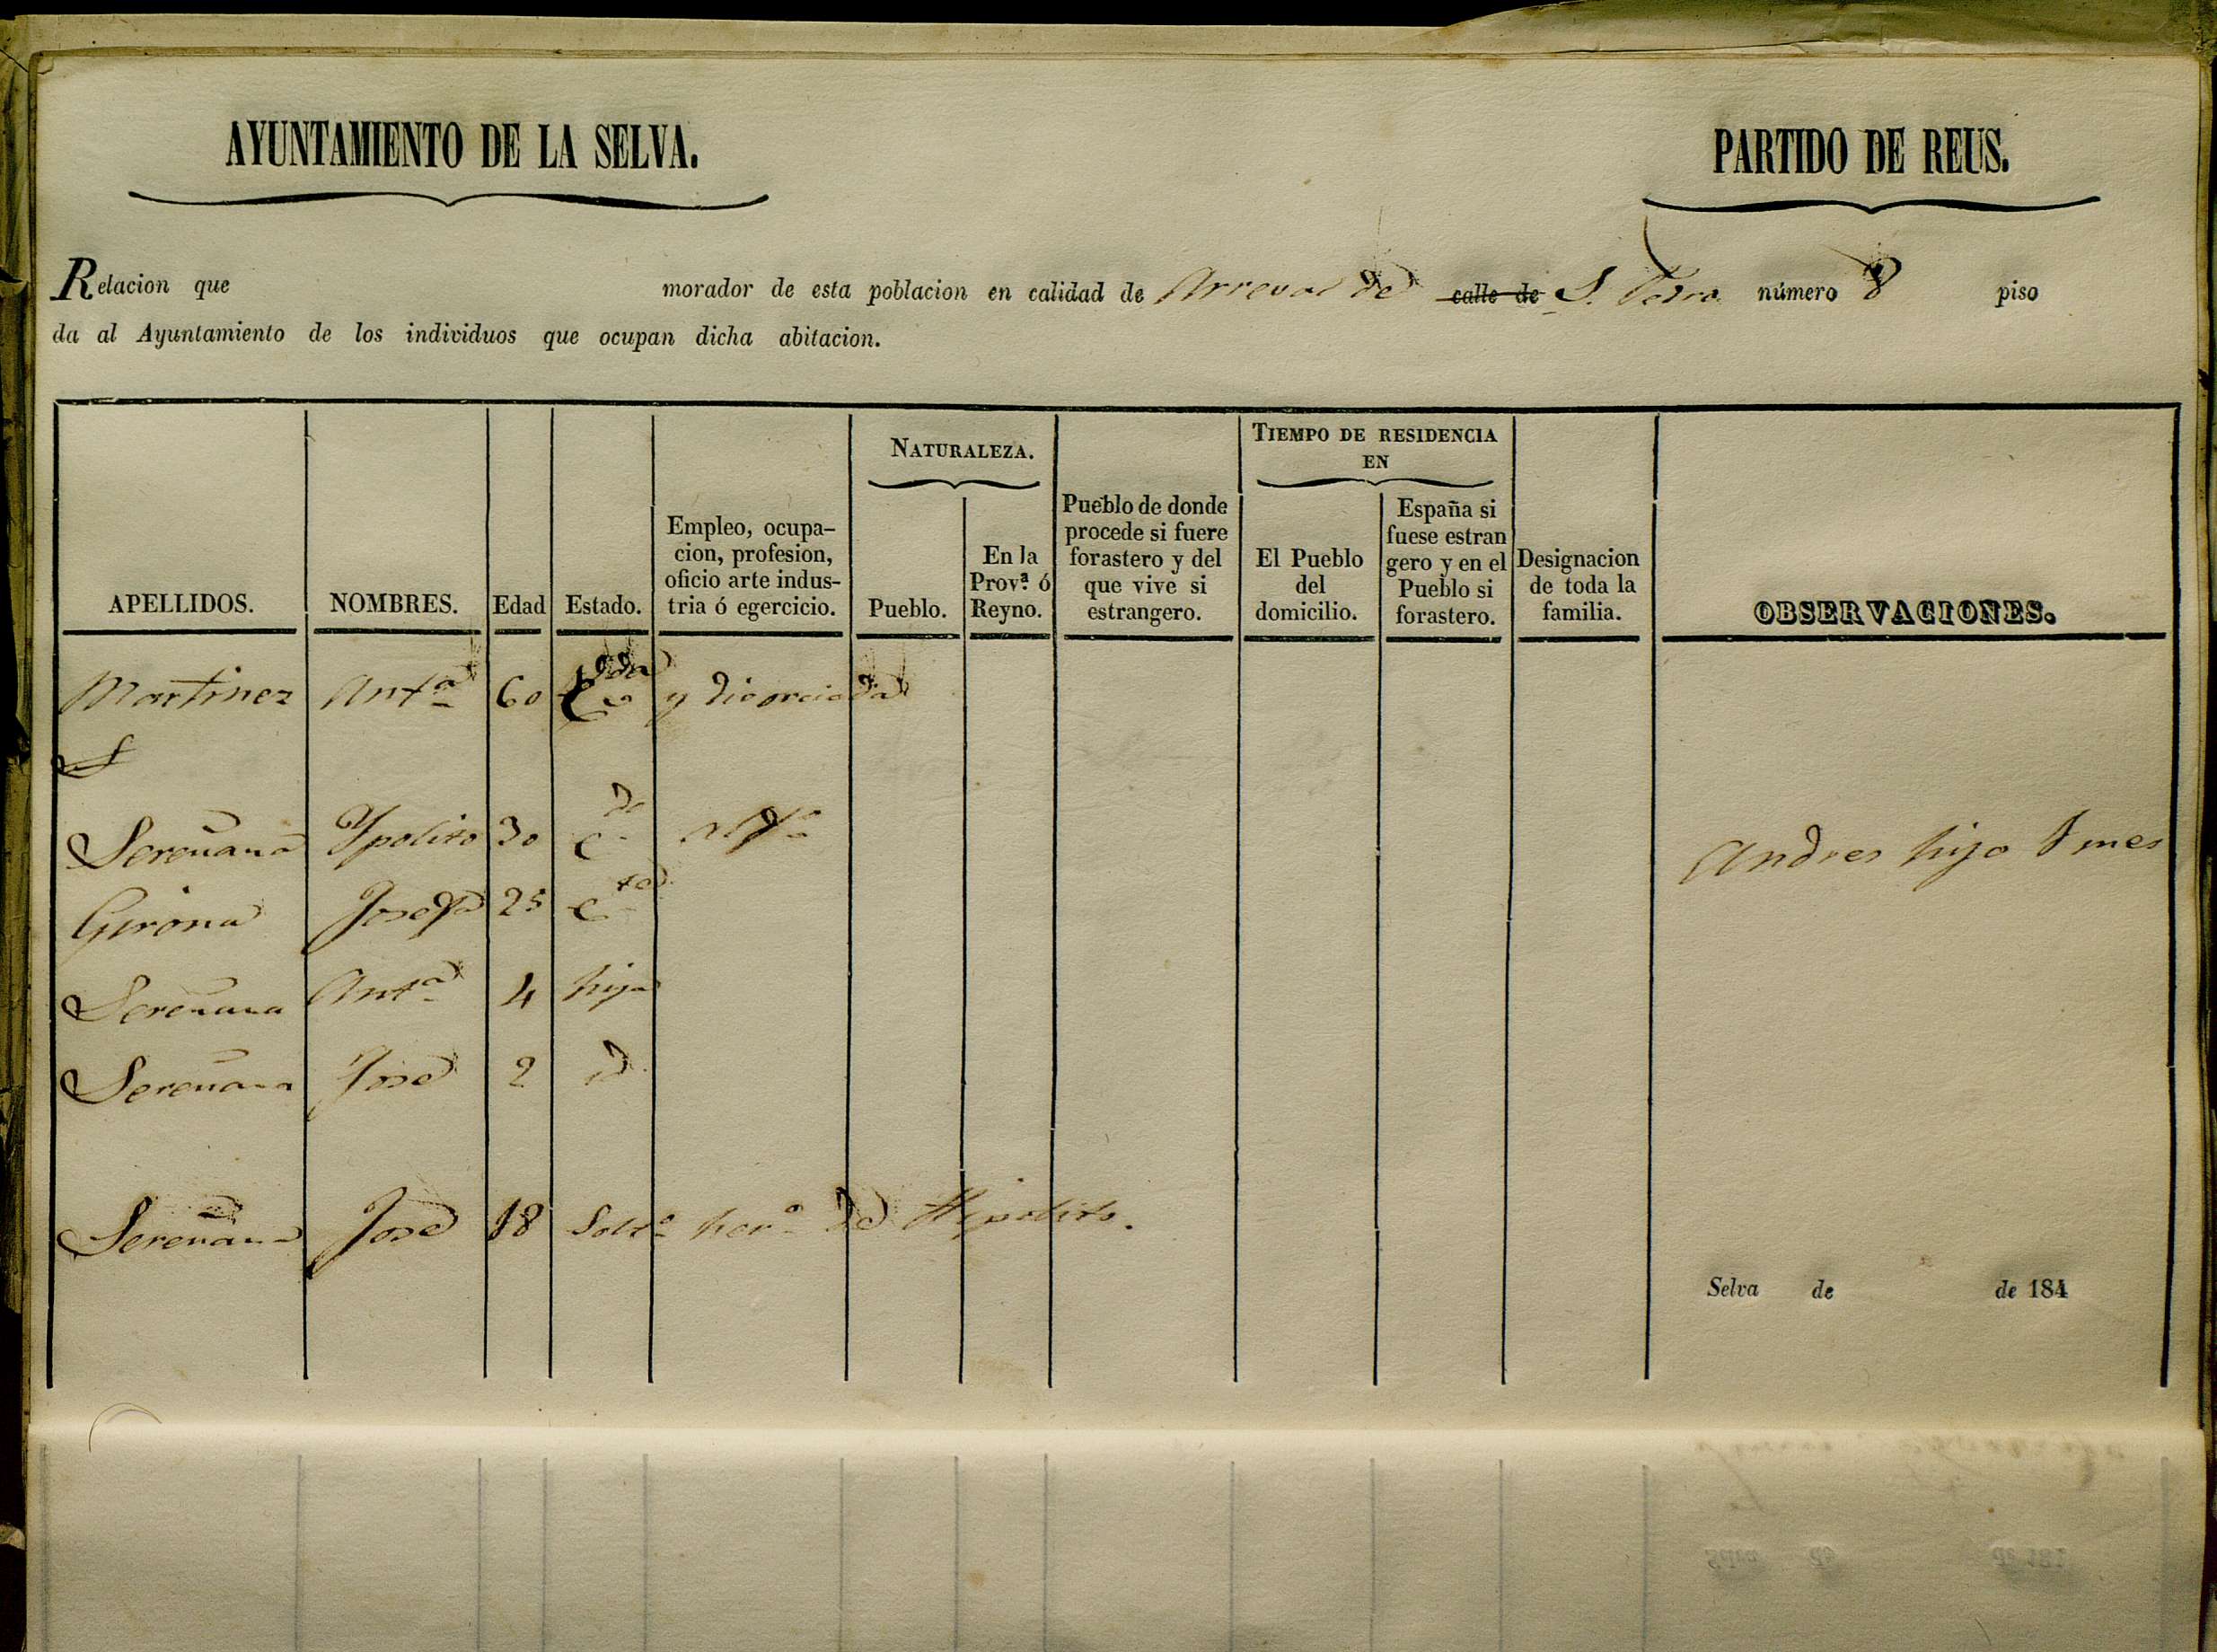 AYUNTAMIENTO DE LA SELVA.
PARTIDO DE REUS.
Relacion que morador de esta poblacion en calidad de Arreval de calle de S. Pedro número 8 piso
da al Ayuntamiento de los individuos que ocupan dicha abitacion.
APELLIDOS. NOMBRES. Edad Estado. Empleo, ocupa-cion, profesion, oficio arte indus-tria ó egercicio. NATURALEZA. Pueblo. En la Prov.ª ó Reyno. Pueblo de donde procede si fuere forastero y del que vive si estrangero. TIEMPO DE RESIDENCIA EN El Pueblo del domicilio. España si fuese estran gero y en el Pueblo si forastero. Designacion de toda la familia. OBSERVACIONES.
Martinez Antª 60 y divorciada
S
Sereñana Ypolito 30 Cdo Andres hijo 1 mes
Girona Josefa 25 C
Sereñana Antª 4 hija
Sereñana José 2 id
Sereñana José 18 Soltº herº de Hipolito.
Selva de de 184